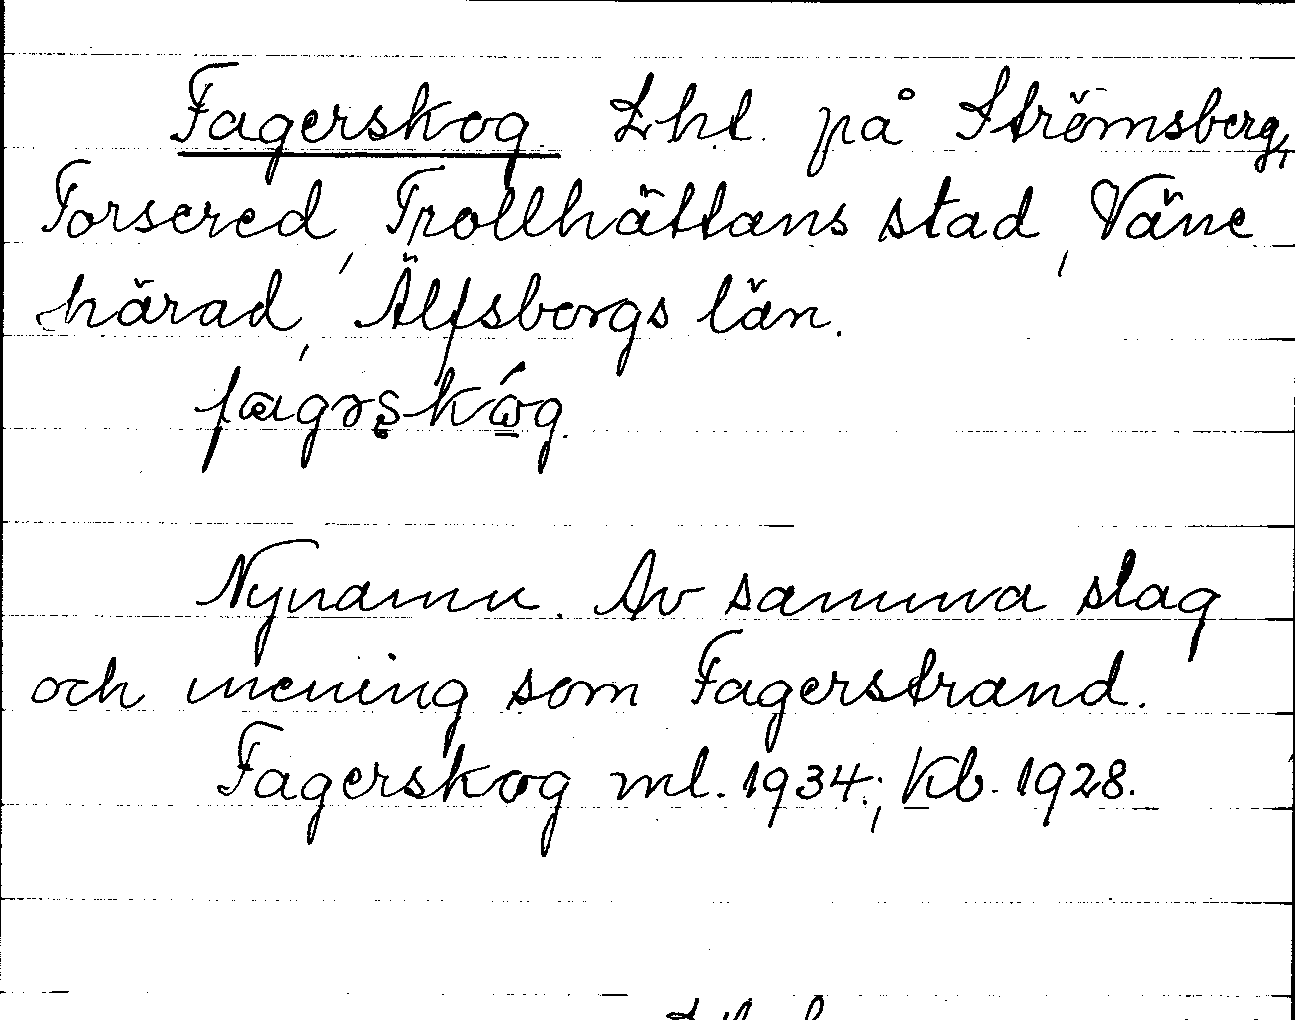 Fagerskog Lht. på Strömsberg,
Torsered, Trollhättans stad, Väne
härad, Älfsborgs län.
Nynamn. Av samma slag
och mening som Fagerstrand.
Fagerskog ml. 1934.; Kb. 1928.